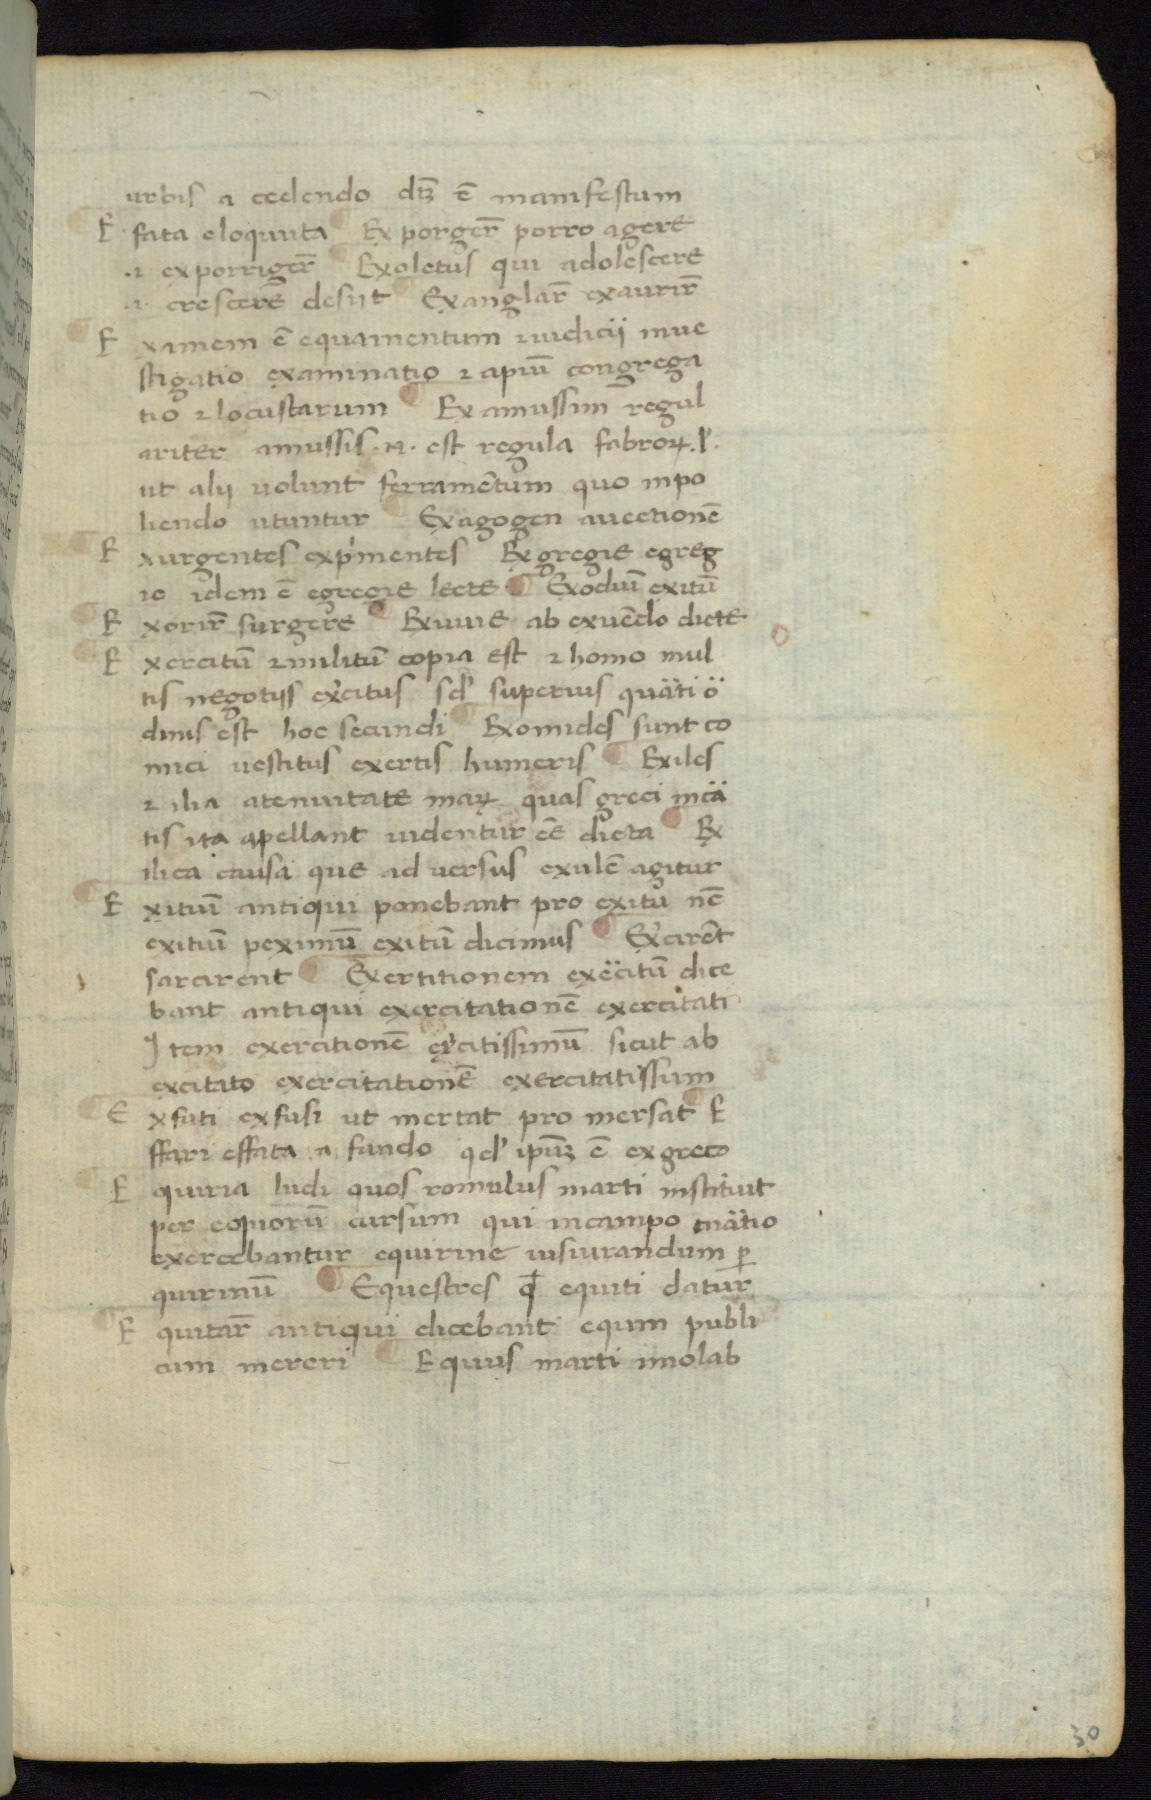 urbis a cedendo dr̄ ē manifestum
E fata eloquuta Ex porger̄ porro agere
⁊ exporriger̄ Exoletus qui adolescere
⁊ crescere desiit Exanglar̄ exaurir̄
E xamem ē equamentum ⁊ iudicii inue
stigatio examinatio ⁊ apiū congrega
tio ⁊ locustarum Ex amussim regul
ariter amussis .n. est regula fabroꝝ. l'.
ut alij uolunt ferramētum quo inpo
liendo utuntur Exagogen auectionē
E xurgentes exp'mentes Ex gregie egreg
ie idem ē egregie lecte Exodiū exitū
E xorir̄ surgere Exuuie ab exuēdo dicte
E xercitū ⁊ militū copia est ⁊ homo mul
tis negotijs ex'citus sd' superius quāti ō
dinis est hoc secundi Exomides sunt co
mici uestitus exertis humeris Exiles
⁊ ilia atenuitate inaꝝ quas greci incā
tis ita apellant uidentur eē dicta Ex
ilica causa que ad uersus exulē agitur
E xitiū antiqui ponebant pro exitu nē
exitiū pexim̄u exitū dicimus Ex'cirēt
sarcirent Exertitionem exēcitū dice
bant antiqui exercitationē exercitati
Item exercitionē ex'citissimū sicut ab
excitato exercitationē exercitatissum
E xfuti exfusi ut mertat pro mersat E
ffari effata a fando qd' ipūȝ ē ex greco
E quiria ludi quos romulus marti instituit
per equorū cursum qui incampo mātio
exercebantur equirine iusiurandum ꝑ
quirinū Equestres qd̄ equiti datur
E quitar̄ antiqui dicebant equm publi
cum mereri Equus marti imolab
30